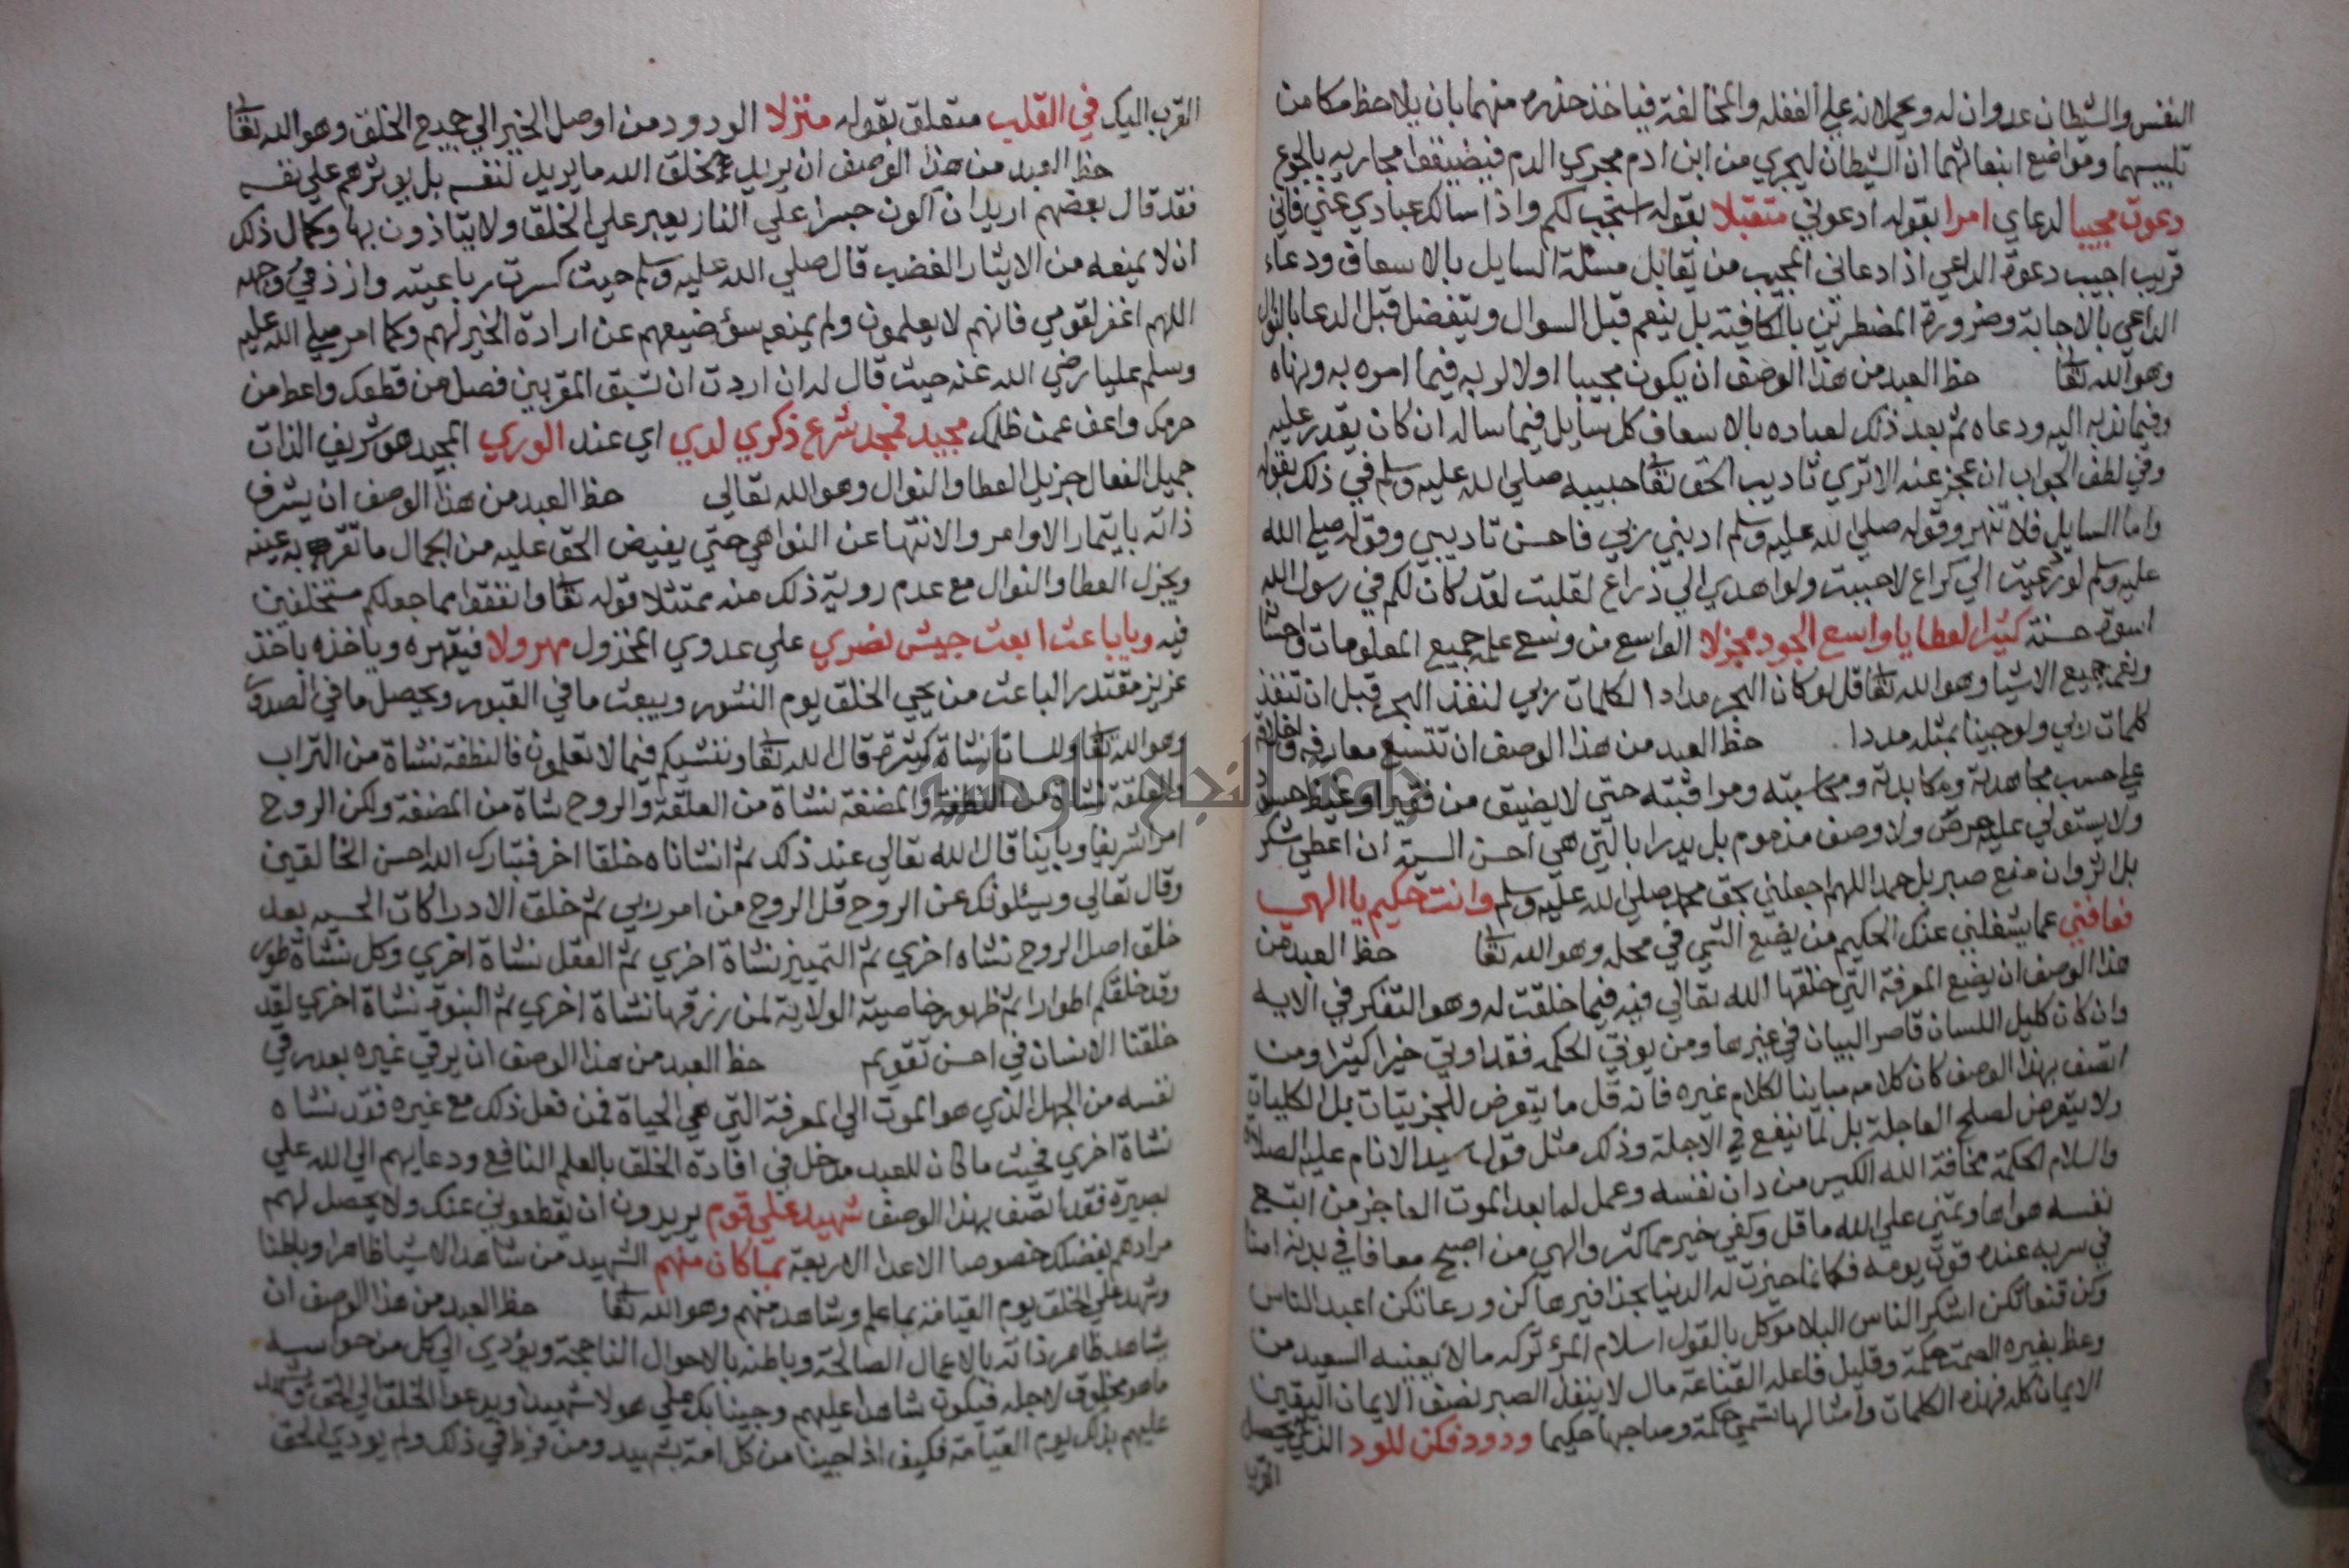 النفس والشيطان عدوان له ويحملانه علي الغفله والمخالفة فياخذ حذره منهما بان يلاحظ مكامن
تلبيسهما ومواضع انبعاثهما ان الشيطان ليجري من ابن ادم مجري الدم فيضيقفوا مجاريه بالجوع
دعوت مجيبا لدعاي امرا بقوله ادعوني متقبلا بقوله استجب لكم واذا سالك عبادي عني فاني
قريب اجيب دعوة الداعي اذا دعاني المجيب من يقابل مسئلة السايل بالاسعاف ودعاء
الداعي بالاجابة وضرورة المضطرين بالكافية بل ينعم قبل السوال ويتفضل قبل الدعا بالنوال
وهو الله تعا حظ العبد من هذا الوصف ان يكون مجيبا اولا لربه فيما امره به ونهاه
وفيما ندبه اليه ودعاه ثم بعد ذلك لعباده بالاسعاف كل سايل فيما ساله ان كان يقدر عليه
وفي لطف الجواب ان عجز عنه الاتري تاديب الحق تعا حبيبه صلي الله عليه وسلم في ذلك بقوله
واما السايل فلا تنهر وقوله صلي الله عليه وسلم ادبني ربي فاحسن تاديبي وقوله صلي الله
عليه وسلم لو دعيت الي كراع لاجبت ولو اهدي الي ذراع لقبلت لقد كان لكم في رسول الله
اسوة حسنة كثير العطايا واسع الجود مجزلا الواسع من وسع علمه جميع المعلومات واحسانه
ونعمه جميع الاشيا وهو الله تعا قل لو كان البحر مدادا لكلمات ربي لنفذ البحر قبل ان تنفذ
كلمات ربي ولو جينا بمثله مددا . حظ العبد من هذا الوصف ان تتسع معارفه واخلاقه
علي حسب مجاهدته ومكابدته ومحاسبته ومراقبته حتي لا يضيق من فقير او غيظ حسود
ولا يستولي عليه حرص ولا وصف مذموم بل يدرا بالتي هي احسن السية ان اعطي شكر
بل اثر وان منع صبر بل حمد اللهم اجعلني بحق محمد صلي الله عليه وسلم وانت حكيم يا الهي
فعافني عما يشغلني عنك الحكيم من يضع الشي في محله وهو الله تعا حظ العبد من
هذا الوصف ان يضع المعرفة التي خلقها الله تعالي فيه فيما خلقت له وهو التفكر في الايه
وان كان كليل اللسان قاصر البيان في غيرها ومن يوتي الحكمه فقد اوتي خيرا كثيرا ومن
اتصف بهذا الوصف كان كلامه مباينا لكلام غيره فانه قل ما يتعرض للجزييات بل الكليات
ولا يتعرض لصلح العاجلة بل لما ينفع في الاجلة وذلك مثل قول سيد الانام عليه الصلاة
والسلام الحكمة مخافة الله الكيس من دان نفسه وعمل لما بعد الموت العاجز من اتبع
نفسه هواها وتمني علي الله ما قل وكفي خير مما كثر والهي من اصبح معافا في بدنه امنا
في سربه عنده قوت يومه فكانما حيزت له الدنيا بحذافيرها كن ورعا تكن اعبد الناس
وكن قنعا تكن اشكر الناس البلا موكل بالقول اسلام المرء تركه ما لا يعنيه السعيد من
وعظ بغيره الصمت حكمة وقليل فاعله القناعة مال لا ينفد الصبر نصف الايمان اليقين
الايمان كله فهذه الكلمات وامثالها تسمي حكمة وصاحبها حكيما ودود فكن للود الذي يحصل
القرب
القرب اليك في القلب متعلق بقوله منزلا الودود من اوصل الخير الي جميع الخلق وهو الله تعا
حظ العبد من هذا الوصف ان يريد لخلق الله ما يريد لنفسه بل يوثرهم علي نفسه
فقد قال بعضهم اريد ان اكون جسرا علي النار يعبر علي الخلق ولا يتاذون بها وكمال ذلك
ان لا يمنعه من الايثار الغضب قال صلي الله عليه وسلم حيث كسرت رباعيته واذذ في وجهه
اللهم اغفر لقومي فانهم لا يعلمون ولم يمنعه سؤ ضيعهم عن ارادة الخير لهم وكما امر صلي الله عليه
وسلم عليا رضي الله عنه حيث قال له ان اردت ان تسبق المقربين فصل من قطعك واعط من
حرمك واعف عمن ظلمك مجيد فمجد شرع ذكري لدي اي عند الوري المجيد هو شريف الذات
جميل الفعال جزيل العطا والنوال وهو الله تعالي حظ العبد من هذا الوصف ان يشرف
ذاته بايتمار الاوامر والانتها عن النواهي حتي يفيض الحق عليه من الجمال ما تقر به عينه
ويجزل العطا والنوال مع عدم روية ذلك منه ممتثلا قوله تعا وانفقوا مما جعلكم مستخلفين
فيه ويا باعث ابعث جيش نصري علي عدوي المخزول مهرولا فيقهره وياخذه باخذ
عزيز مقتدر الباعث من يحي الخلق يوم النشور ويبعث ما في القبور ويحصل ما في الصدور
وهو الله تعا وللساة نشاة كثيرة قال الله تعا وننشيكم فيما لا تعلمون فالنطفة نشاة من التراب
والعلقة نشاة من النطفة والمضغة نشاة من العلقة والروح نشاة من المضغة ولكن الروح
امرا شريفا وباينا قال الله تعالي عند ذلك ثم انشاناه خلقا اخر فتبارك الله احسن الخالقين
وقال تعالي ويسئلونك عن الروح قل الروح من امر ربي ثم خلق الادراكات الحسيه بعد
خلق اصل الروح نشاه اخري ثم التمييز نشاة اخري ثم العقل نشاة اخري وكل نشاة طور
وقد خلقكم اطوارا ثم ظهور خاصية الولاية لمن رزقها نشاة اخري ثم النبوة نشاة اخري لقد
خلقنا الانسان في احسن تقويم حظ العبد من هذا الوصف ان يرقي غيره بعد رقي
نفسه من الجهل الذي هو الموت الي المعرفة التي هي الحياة فمن فعل ذلك مع غيره فقد نشاه
نشاة اخري فحيث ما كان للعبد مدخل في افادة الخلق بالعلم النافع ودعايهم الي الله علي
بصيرة فقد اتصف بهذا الوصف شهيد علي قوم يريدون ان يقطعوني عنك ولا يحصل لهم
مرادهم بفضلك خصوصا الاعدا الاربعة بما كان منهم الشهيد من شاهد الاشيا ظاهرا وباطنا
وشهد علي الخلق يوم القيامة بما علم وشاهد منهم وهو الله تعا حظ العبد من هذا الوصف ان
يشاهد ظاهر ذاته بالاعمال الصالحة وباطنه بالاحوال الناجحة ويؤدي الي كل من حواسه
ما هو مخلوق لاجله فيكون شاهدا عليهم وجينا بك علي هولا شهيدا ويدعوا الخلق الي الحق ويشهد
عليهم بذلك يوم القيامة فكيف اذا جينا من كل امة بشهيد ومن فرط في ذلك ولم يودي الحق
جامعة النجاح الوطنية